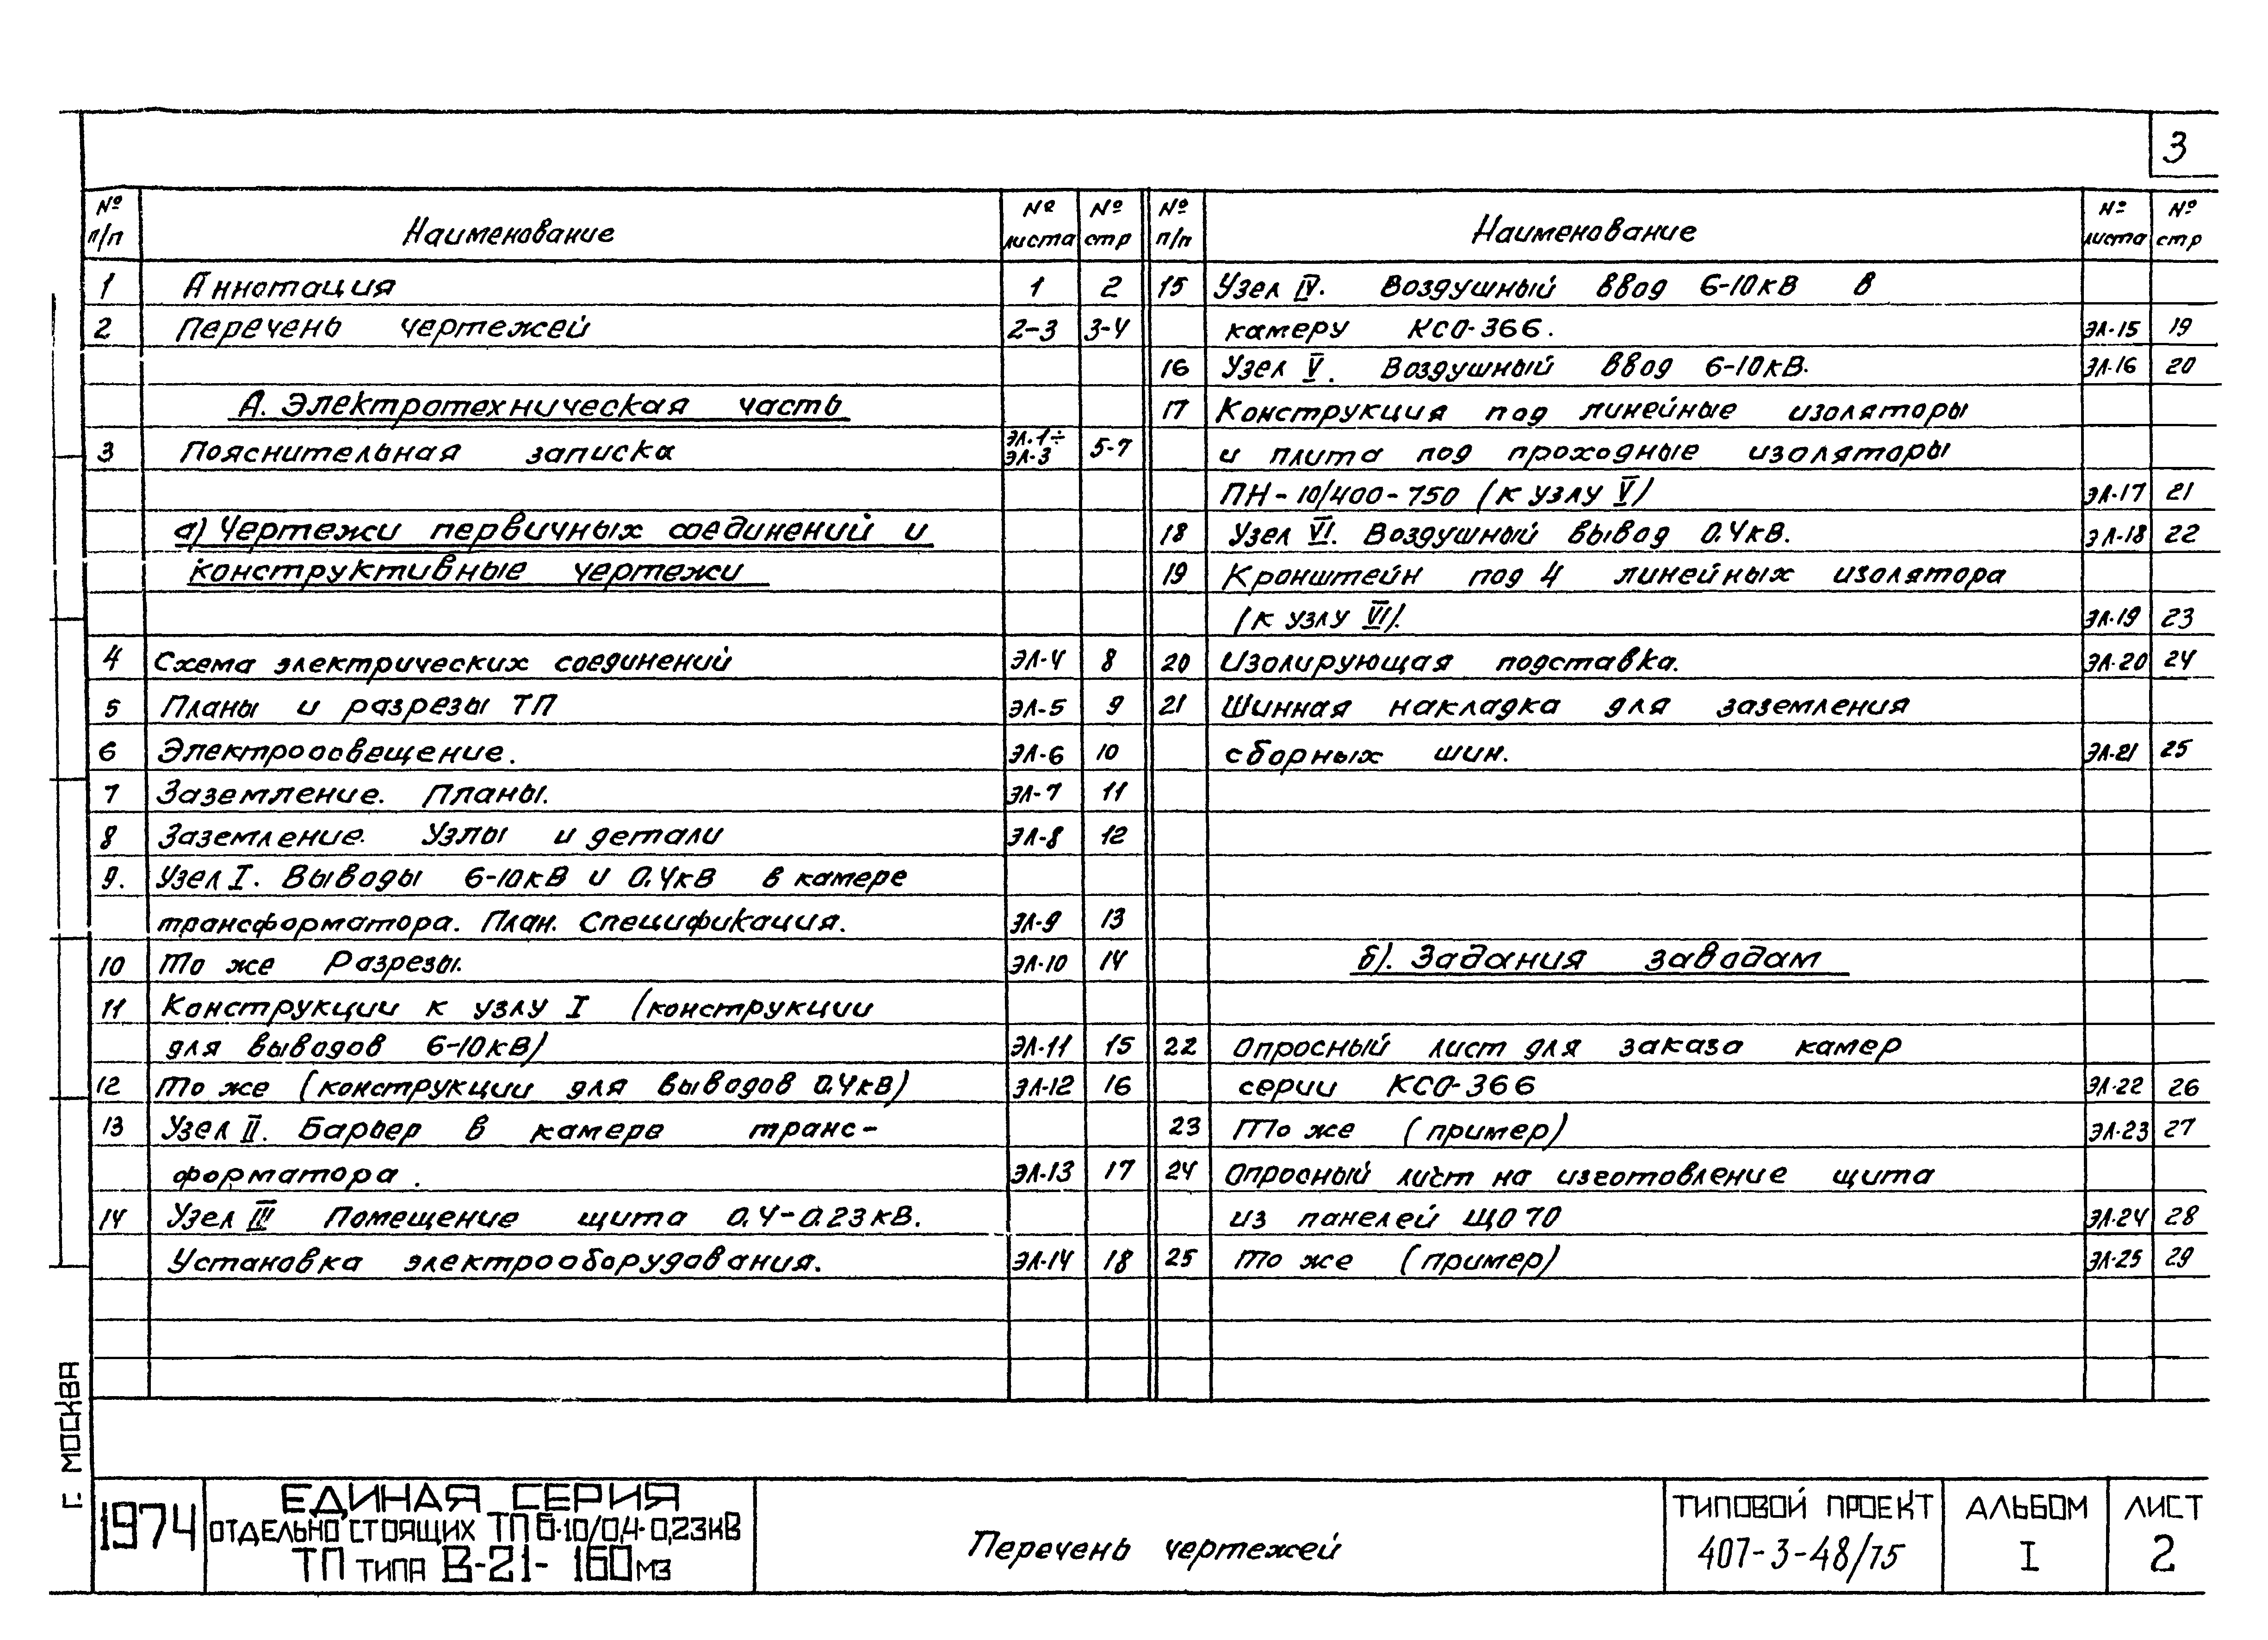 3
№ п/п Наименование № листа № стр
1 Аннотация 1 2
2 Перечень чертежей 2-3 3-4
А. Электротехническая часть
3 Пояснительная записка ЭЛ.1÷ ЭЛ-3 5-7
а) Чертежи первичных соединений и
конструктивные чертежи
4 Схема электрических соединений ЭЛ-4 8
5 Планы и разрезы ТП ЭЛ-5 9
6 Электроосвещение. ЭЛ-6 10
7 Заземление. Планы. ЭЛ-7 11
8 Заземление. Узлы и детали ЭЛ-8 12
9. Узел I. Выводы 6-10кВ и 0.4кВ в камере
трансформатора. План. Спецификация. ЭЛ-9 13
10 То же Разрезы. ЭЛ-10 14
11 Конструкции к узлу I (конструкции
для выводов 6-10кВ) ЭЛ-11 15
12 То же (конструкции для выводов 0.4кВ) ЭЛ-12 16
13 Узел II. Барьер в камере транс-
форматора. ЭЛ-13 17
14 Узел III Помещение щита 0.4-0.23кВ.
Установка электрооборудования. ЭЛ-14 18
№ п/п Наименование № листа № стр
15 Узел IV. Воздушный ввод 6-10кВ в
камеру КСО-366. ЭЛ-15 19
16 Узел V. Воздушный ввод 6-10кВ. ЭЛ-16 20
17 Конструкция под линейные изоляторы
и плита под проходные изоляторы
ПН-10/400-750 (к узлу V) ЭЛ-17 21
18 Узел VI. Воздушный вывод 0.4кВ. ЭЛ-18 22
19 Кронштейн под 4 линейных изолятора
(к узлу VI). ЭЛ-19 23
20 Изолирующая подставка. ЭЛ-20 24
21 Шинная накладка для заземления
сборных шин. ЭЛ-21 25
б). Задания заводам
22 Опросный лист для заказа камер
серии КСО-366 ЭЛ-22 26
23 То же (пример) ЭЛ-23 27
24 Опросный лист на изготовление щита
из панелей ЩО 70 ЭЛ-24 28
25 То же (пример) ЭЛ-25 29
Г. МОСКВА
1974
ЕДИНАЯ СЕРИЯ
ОТДЕЛЬНО СТОЯЩИХ ТП 6-10/0,4-0,23кВ
ТП ТИПА В-21-160м3
Перечень чертежей
ТИПОВОЙ ПРОЕКТ
407-3-48/75
АЛЬБОМ
I
ЛИСТ
2